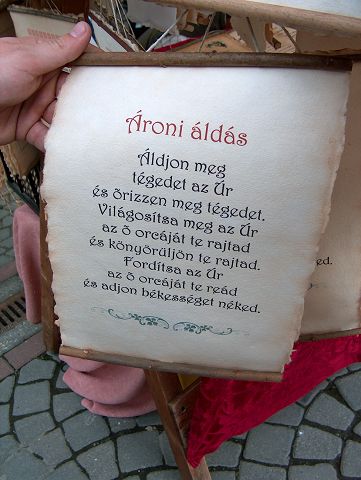 Ároni áldás
Áldjon meg
tégedet az Úr
és õrizzen meg tégedet.
Világosítsa meg az Úr
az õ orcáját te rajtad
és könyörüljön te rajtad.
Fordítsa az Úr
az õ orcáját te reád
és adjon békességet néked.